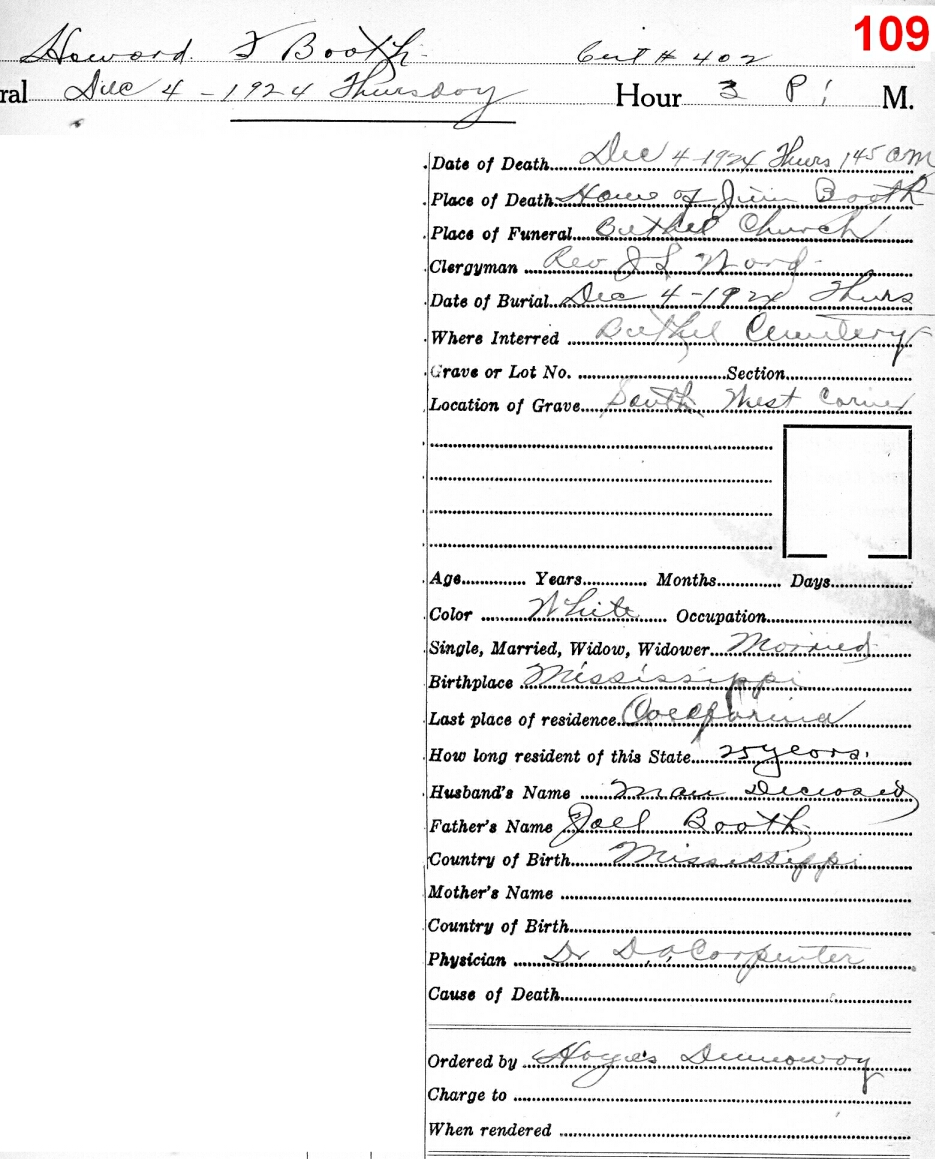 109
Howard F Booth Cert # 402
ral Dec 4 - 1924 Thursday Hour 3 P. M.
Date of Death Dec 4-1924 Thurs 145 am
Place of Death Home of Jim Booth
Place of Funeral Bethel Church
Clergyman Rev J L Word
Date of Burial Dec 4-1924 Thurs
Where Interred Bethel Cemetery
Grave or Lot No. Section
Location of Grave South West Corner
Age Years Months Days
Color White Occupation
Single, Married, Widow, Widower Married
Birthplace Mississippi
Last place of residence
How long resident of this State 25 years.
Husband's Name Deceased
Father's Name Joel Booth
Country of Birth Mississippi
Mother's Name
Country of Birth
Physician Dr D.A. Carpenter
Cause of Death
Ordered by
Charge to
When rendered